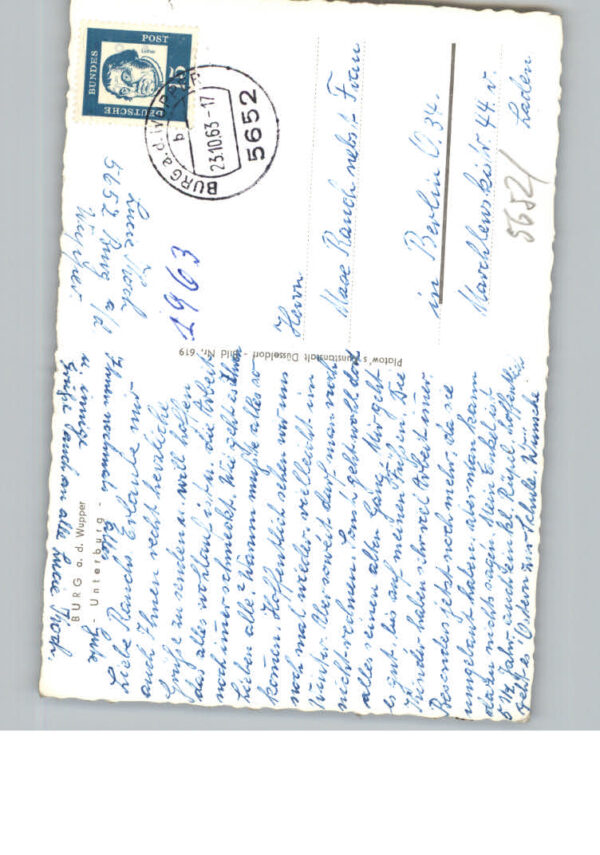 DEUTSCHE
BUNDES
POST
25
Luther
BURG a.d. WUPPER
b
23.10.63-17
5652
5652 Burg a/d
Wupper
1963
Herrn
Max Rauch nebst Frau
in Berlin O. 34.
44 v.
Laden
5652/
Platow's Kunstanstalt Düsseldorf - Bild Nr. 619
BURG a. d. Wupper
- Unterburg -
Liebe Rauchs Erlaube mir
auch Ihnen recht herzliche
Grüße zu senden u. will hoffen
das alles wohlauf ist u. die Arbeit
noch immer schmeckt. Wie geht es Ihnen
Lieben alle? Warum mußte alles so
kommen. Hoffentlich sehen wir uns
noch mal wieder, vielleicht im
Winter. Aber soweit darf man noch
nicht rechnen. geht wohl dort
alles seinen alten Gang. Mir geht
es gut, bis auf meinen Füßen. Die
Kinder haben ihr viel Arbeit immer.
Besonders jetzt noch mehr, da sie
umgebaut haben, aber man kann
da nichts sagen. Mein Enkel ist
5 1/2 Jahr, auch ein kl. Rüpel, hoffentlich
geht es Ostern zur Schule. Wünsche
Ihnen nochmals alles Gute
u. innige
Grüße Tante